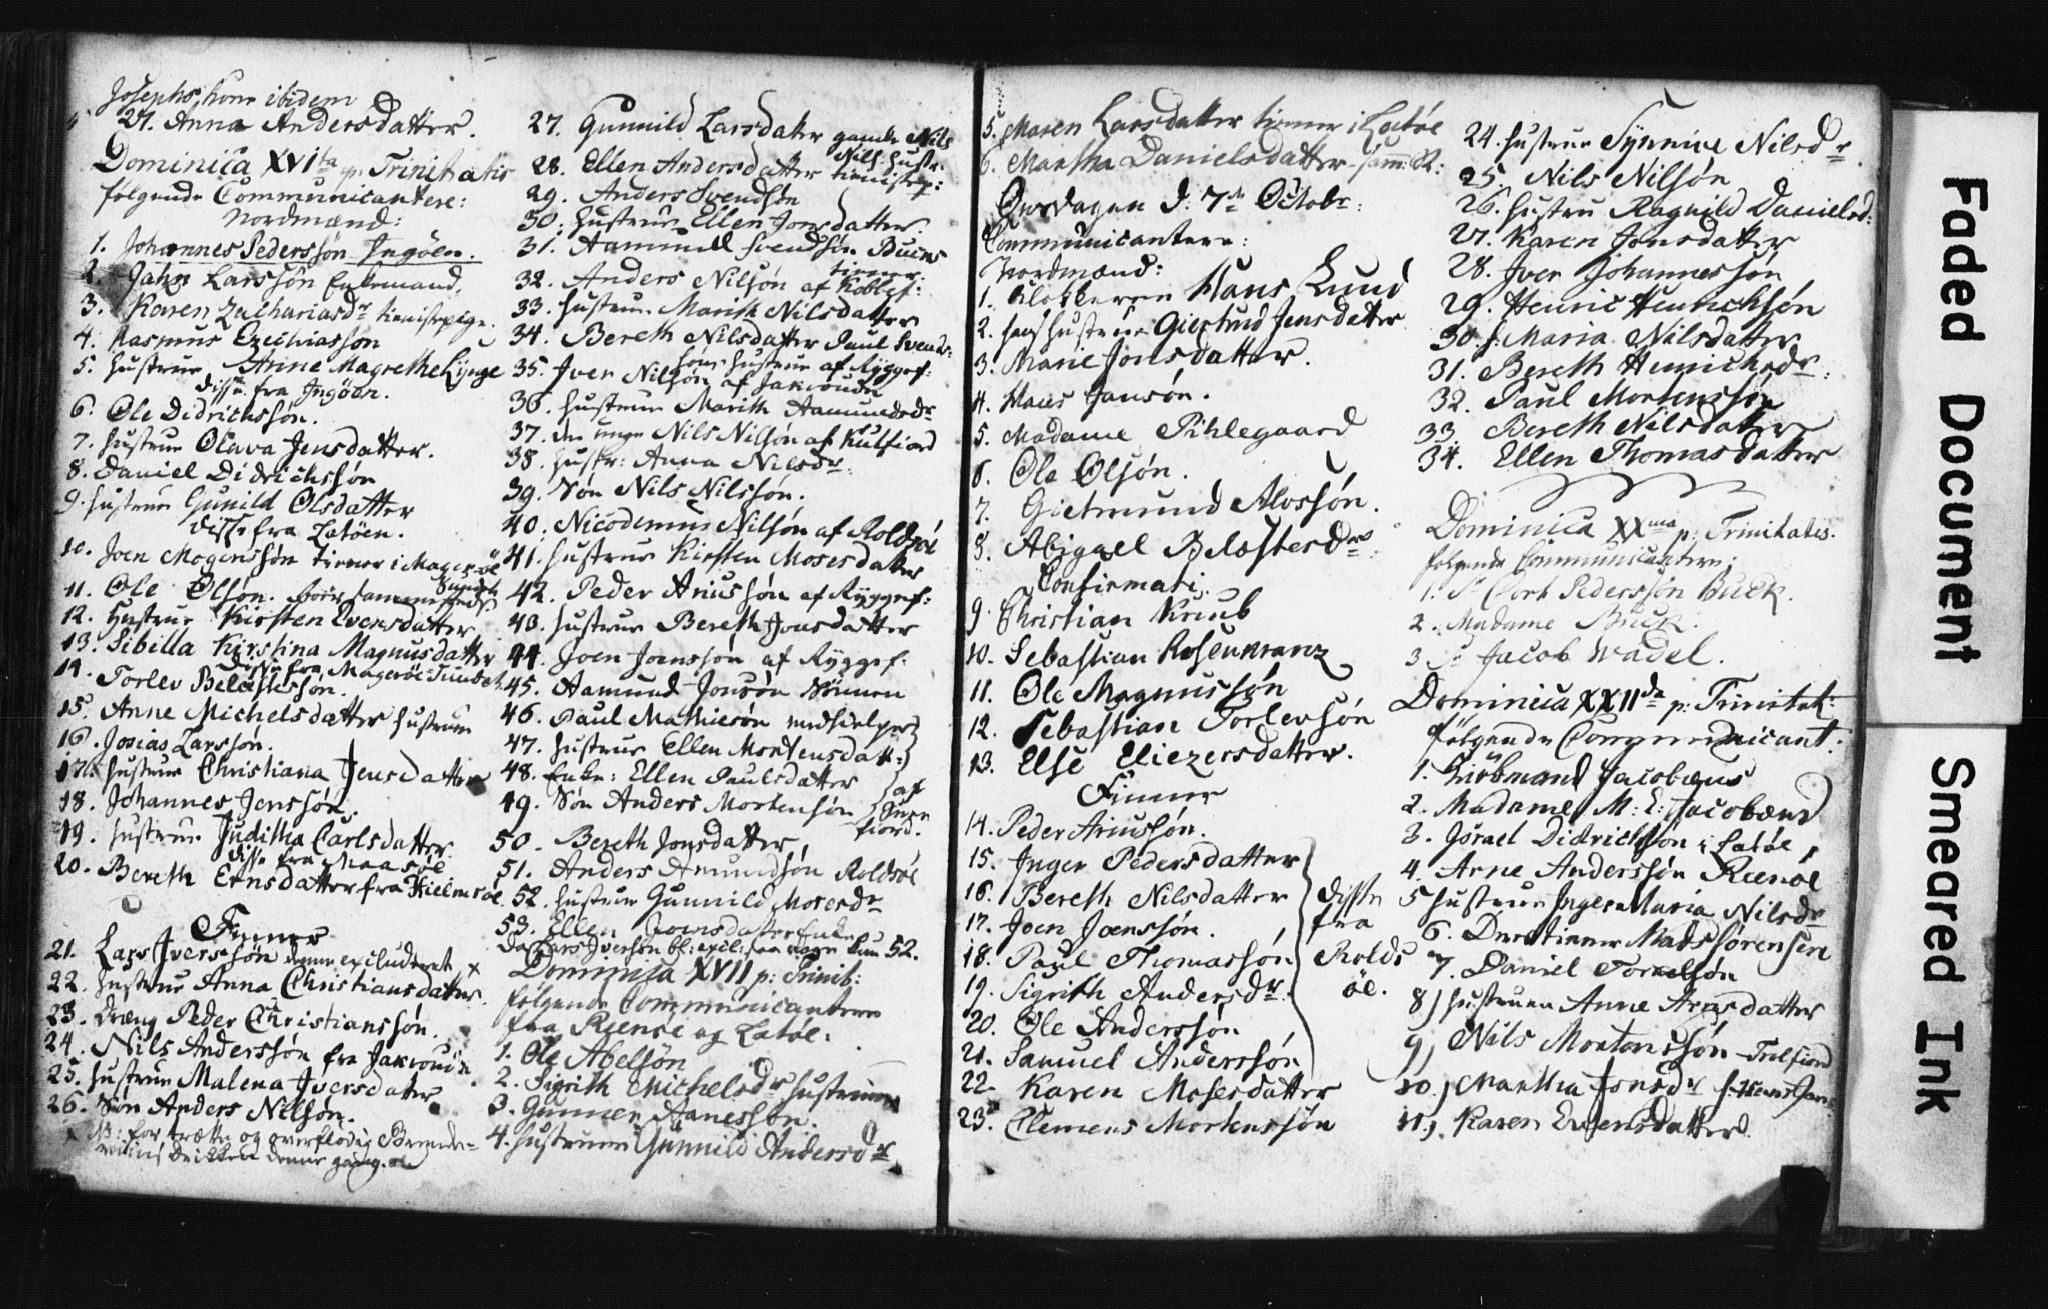 Josephs kone ibidem
27. Anna Andersdatter.
Dominica XVIta p: Trinitatis
følgende Communicantere:
Nordmænd:
1. Johannes Pederssøn Ingöen.
2. Jahn Larssøn Enkemand.
3. Karen Zachariasdr tienistepige.
4. Rasmus Ezechiassøn
5. Hustrue Anne Magrethe Lÿnge
disse fra Ingöen.
6. Ole Didrichssøn.
7. Hustrue Olava Jensdatter.
8. Daniel Didrichssøn
9. Hustrue Gunild Olsdatter
disse fra Latöen.
10. Joen Mogenssøn tiener i Mageröe
Sundet
11. Ole Olsøn. boer sammesteds
12. Hustrue Kirsten Eversdatter
13. Sibilla Kirstina Magnusdatter
disse fra Mageröe Sundet.
14. Torlev Belästessøn.
15. Anne Michelsdatter Hustrue
16. Josias Larssøn.
17. Hustrue Christiana Jensdatter
18. Johannes Jenssøn.
19. Hustrue Juditha Carlsdatter
disse fra Maasöe
20. Bereth Ernsdatter fra Hielmsöe
Finner
21. Lars Iverssøn denne excluderet x
22. Hustrue Anna Christiansdatter.
23. Dræng Peder Christianssøn.
24. Nils Anderssøn fra Jakvoude
25. Hustrue Malena Iversdatter
26. Søn Anders Nilsøn.
x NB: for trætte og overflödig Brende-
viins drikken denne gang.
27. Gunnild Larsdater gamle Nils
Nils: Hustr:
28. Ellen Andersdatter tienistep:
29. Anders Svendsøn
30. Hustrue Ellen Jonsdatter.
31. Aammell Svendsøn Bucks
tiener.
32. Anders Nilsøn af Koblef:
33. Hustrue Marith Nilsdatter
34. Bereth Nilsdatter Paul Svends-
søns Hustrue af Ryggef:
35. Iver Nilsøn af Jakvoude
36. Hustrue Marith Aamundsdr
37. den unge Nils Nilsøn af Kulfiord
38. Hustr: Anna Nilsdr:
39. Søn Nils Nilssøn.
40. Nicodemus Nilsøn af Roldsöe
41. Hustrue Kirsten Mosesdatter
42. Peder Ariussøn af Ryggef:
43. Hustrue Bereth Jonsdatter
44. Joen Joenssøn af Ryggef:
45. Aamund Jonsøn Sönnen
46. Paul Mathiesøn medhielper
47. Hustrue Ellen Mortensdatt:
48. Enke: Ellen Paulsdatter
49. Søn Anders Mortensøn
af
fiord.
50. Bereth Jonsdatter,
51. Anders Amundsøn Roldsöe
52. Hustrue Gunnild Mosesdr
53. Ellen Joensdatter Enke
Da Lars Iversøn bl: excl: saa vare kun 52.
Dominica XVII p: Trinit:
følgende Communicantere
fra Reense og Latöe.
1. Ole Abelsøn
2. Sigrith Michelsdr Hustruen
3. Gunner Aanessøn.
4. Hustruen Gunnild Andersdr
5. Maren Larsdatter tiener i Latöe
6. Martha Danielsdatter samm: St:
Onsdagen d. 7de Octobr:
Communicantere:
Nordmænd:
1. Klokkeren Hans Lund
2. hans Hustrue Giertrud Jensdatter
3. Marie Jonsdatter.
4. Hans Jansøn.
5. Madame Pihlegaard
6. Ole Olsøn.
7. Gietmund Alvssøn.
8. Abigael Belæstesdr.
Confirmati.
9. Christian Knub
10. Sebastian Rosenkranz
11. Ole Magnussøn
12. Sebastian Torlevsøn
13. Else Eliezersdatter.
Finner
14. Peder Ariussøn.
15. Inger Pedersdatter
16. Bereth Nilsdatter
17. Joen Joenssøn.
18. Paul Thomassøn
19. Sigrith Andersdr.
20. Ole Anderssøn
21. Samuel Anderssøn
disse
fra
Rolds
öe.
22. Karen Mosesdatter
23. Clemens Mortenssøn
24. Hustrue Synnive Nilsdr.
25. Nils Nilsøn
26. Hustru Ragnild Danielsd:
27. Karen Jonsdatter
28. Iver Johannessøn
29. Henric Henrichsøn
30. H. Maria Nilsdatter
31. Bereth Henrichsdr.
32. Paul Mortenssøn
33. Bereth Nilsdatter
34. Ellen Thomasdatter
Dominica XXma p: Trinitatis.
følgende Communicantere:
1. Sr Cort Pederssøn Buck.
2. Madame Buck.
3. Sr Jacob Wadel.
Dominica XXIIda p: Trinitat:
følgende Communicant:
1. Kiöbmand Jacobæus
2. Madame M: E: Jacobæus
3. Israel Didrichsøn i Latöe,
4. Arne Anderssøn Reenöe
5 Hustrue Ingera Maria Nilsdr
6. Deres tiener Mads Sørensen
7. Daniel Torkelsøn
8) Hustruen Anne Arnsdatter
9) Nils Mortenssøn Trolfiord
10.) Martha Jonsdr
11). Karen Evensdatter
Faded Document
Smeared Ink